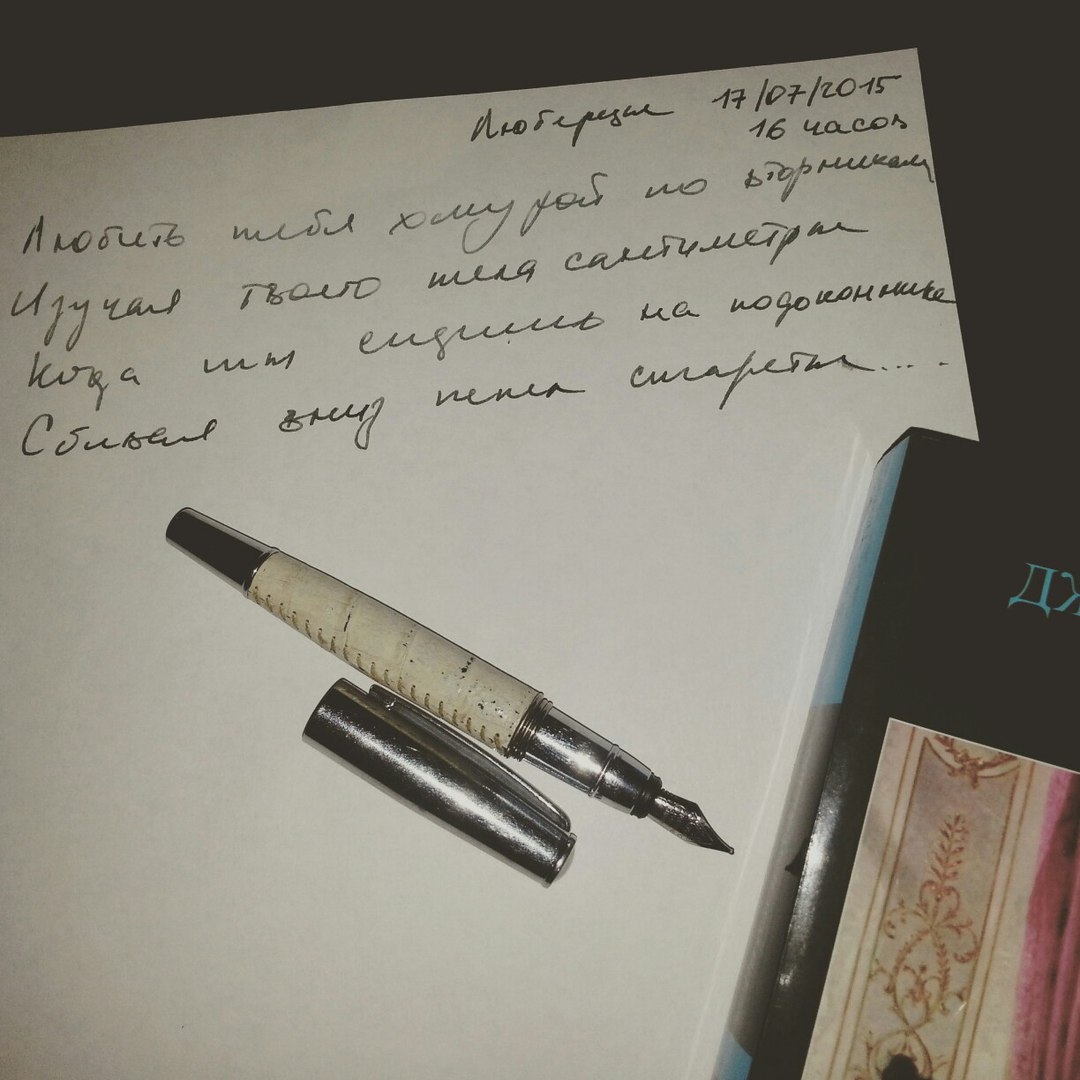 Люберцы 17/07/2015
16 часов
Любить тебя хмурой по вторникам
Изучая твоего тела сантиметры
Когда ты сидишь на подоконнике
Сбивая вниз пепел сигареты....
ДЖ